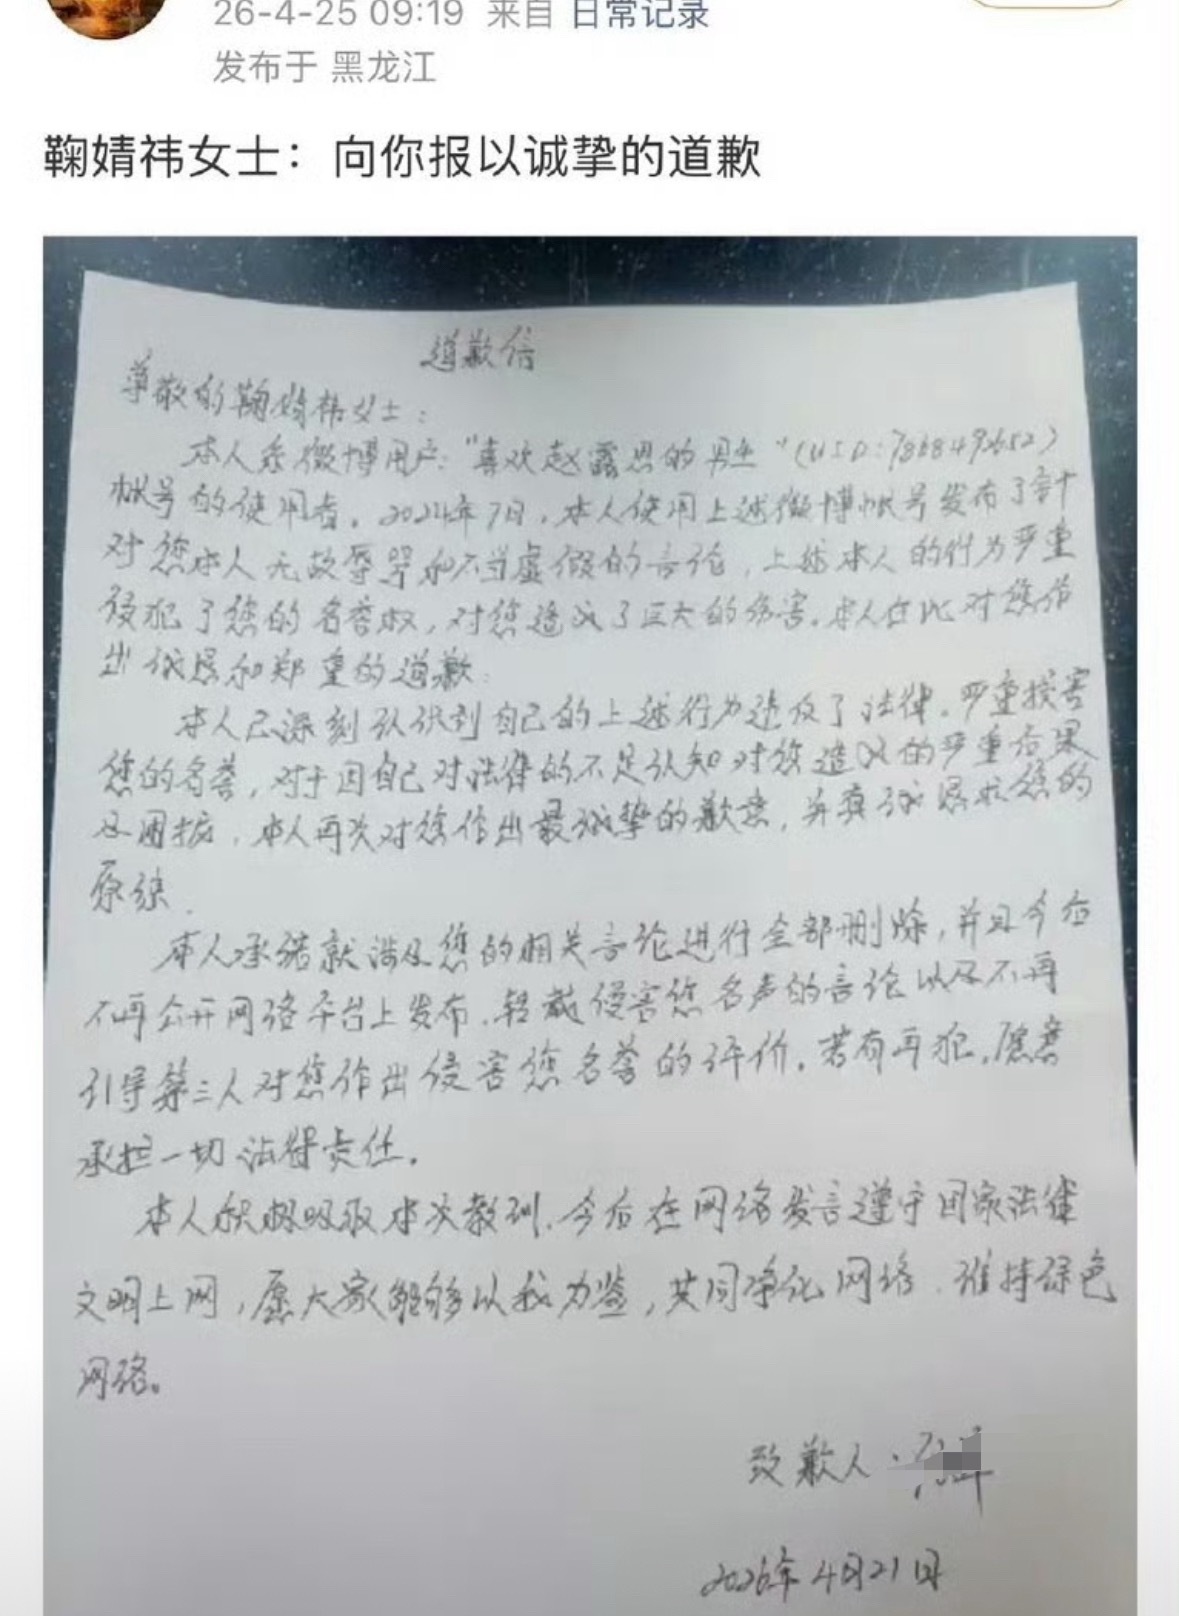 26-4-25 09:19 来自 日常记录
发布于 黑龙江
鞠婧祎女士：向你报以诚挚的道歉
道歉信
尊敬的鞠婧祎女士：
本人系微博用户："喜欢赵露思的男生"（UID:7868492652）
帐号的使用者。2024年7月，本人使用上述微博帐号发布了针
对您本人无故辱骂和不当虚假的言论，上述本人的行为严重
侵犯了您的名誉权，对您造成了巨大的伤害。本人在此对您作
出诚恳和郑重的道歉。
本人已深刻认识到自己的上述行为违反了法律，严重损害
您的名誉，对于因自己对法律的不足认知对您造成的严重后果
及困扰，本人再次对您作出最诚挚的歉意，并真诚恳求您的
原谅。
本人承诺就涉及您的相关言论进行全部删除，并且今后
不再公开网络平台上发布、转载侵害您名声的言论以及不再
引导第三人对您作出侵害您名誉的评价。若有再犯，愿意
承担一切法律责任。
本人积极吸取本次教训，今后在网络发言遵守国家法律
文明上网，愿大家能够以我为鉴，共同净化网络，维持绿色
网络。
致歉人：
2026年4月21日